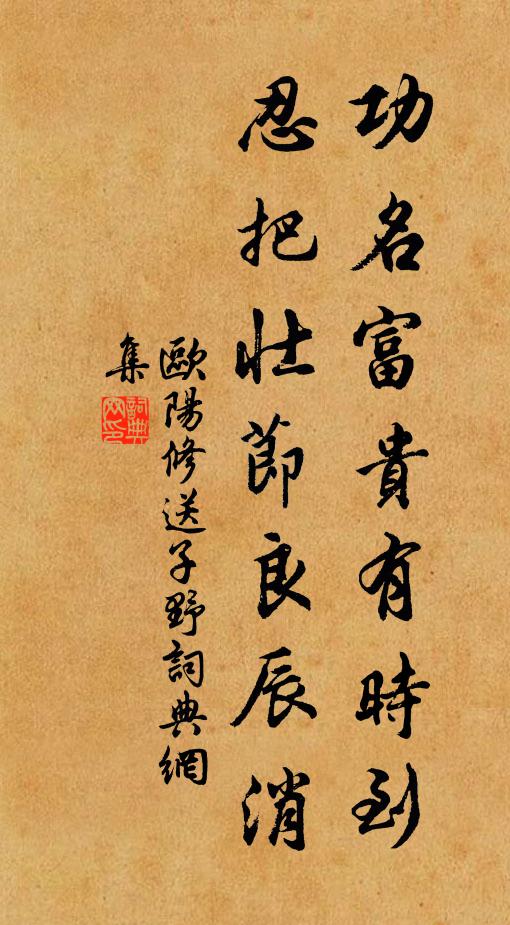 功名富貴有時到
忍把壯節良辰消
歐陽修送子野詞典網
集
詞典網印